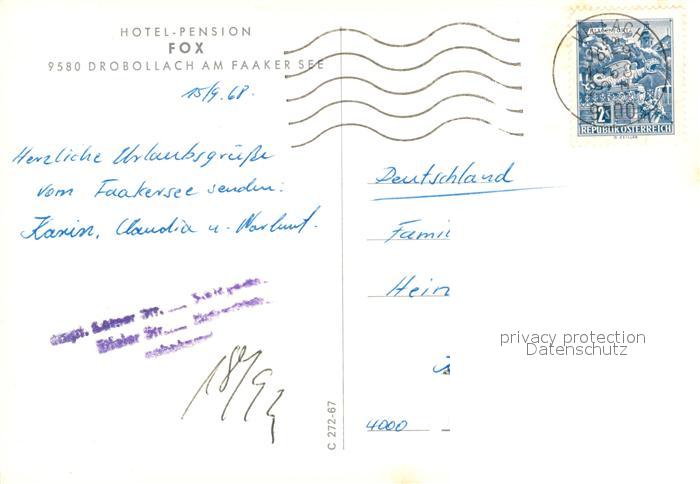 HOTEL-PENSION
FOX
9580 DROBOLLACH AM FAAKER SEE
15/9.68.
Herzliche Urlaubsgrüße
vom Faakersee senden:
Karin, Claudia u.
Deutschland
Famil
Hein
4000
C 272-67
18/9
9500
2S
REPUBLIK ÖSTERREICH
privacy protection
Datenschutz